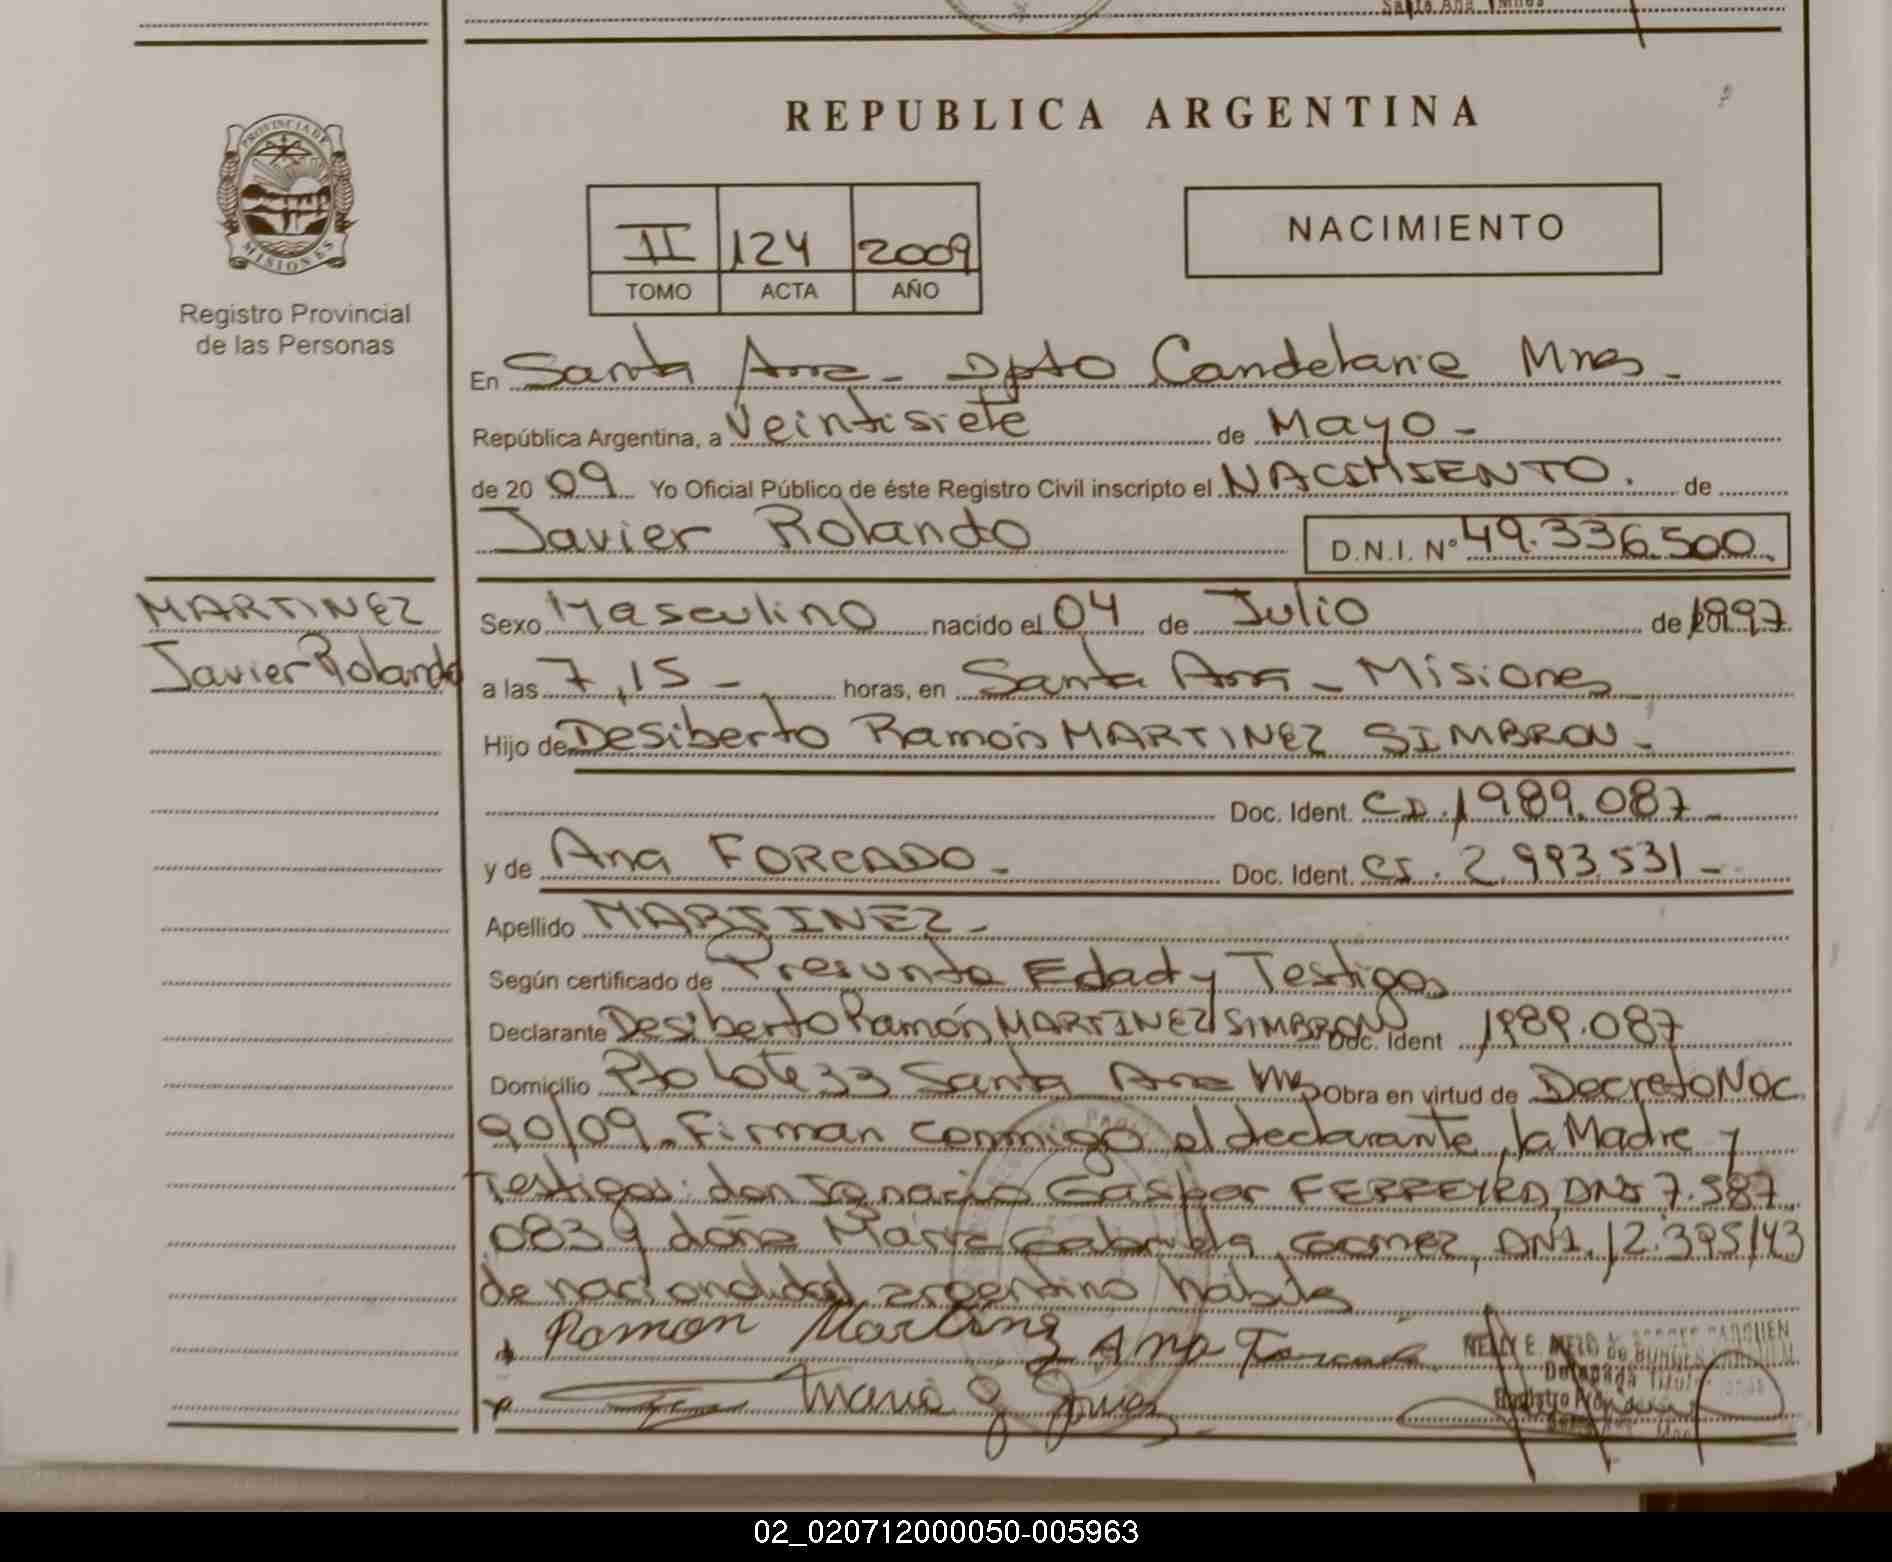 Santa Ana Mnes
REPUBLICA ARGENTINA
PROVINCIA DE
MISIONES
Registro Provincial
de las Personas
II 124 2009
TOMO ACTA AÑO
NACIMIENTO
En Santa Ana - Dpto Candelaria Mnes.
República Argentina, a Veintisiete de Mayo -
de 20 09 Yo Oficial Público de éste Registro Civil inscripto el NACIMIENTO. de
Javier Rolando D.N.I. Nº 49.336.500
MARTINEZ
Javier Rolando
Sexo Masculino nacido el 04 de Julio de 1997
a las 7,15 - horas, en Santa Ana - Misiones
Hijo de Desiberto Ramón MARTINEZ SIMBRON -
Doc. Ident. CD. 1989.087 -
y de Ana FORCADO - Doc. Ident. CI. 2.993.531 -
Apellido MARTINEZ -
Según certificado de Presunta Edad y Testigos
Declarante Desiberto Ramón MARTINEZ SIMBRON Doc. Ident 1989.087
Domicilio Pto Lote 33 Santa Ana Mns Obra en virtud de Decreto Nac
90/09. Firman conmigo el declarante, la Madre y
Testigos: don Ignacio Gaspar FERREYRA, DNI 7.587
083 y doña María Gabriela Gomez, DNI. 12.395143
de nacionalidad argentino habiles
Ramon Martinez Ana Forcado
Maria G Gomez
NELLY E. MELO de
Delegada Titular
Registro Prov
02_020712000050-005963